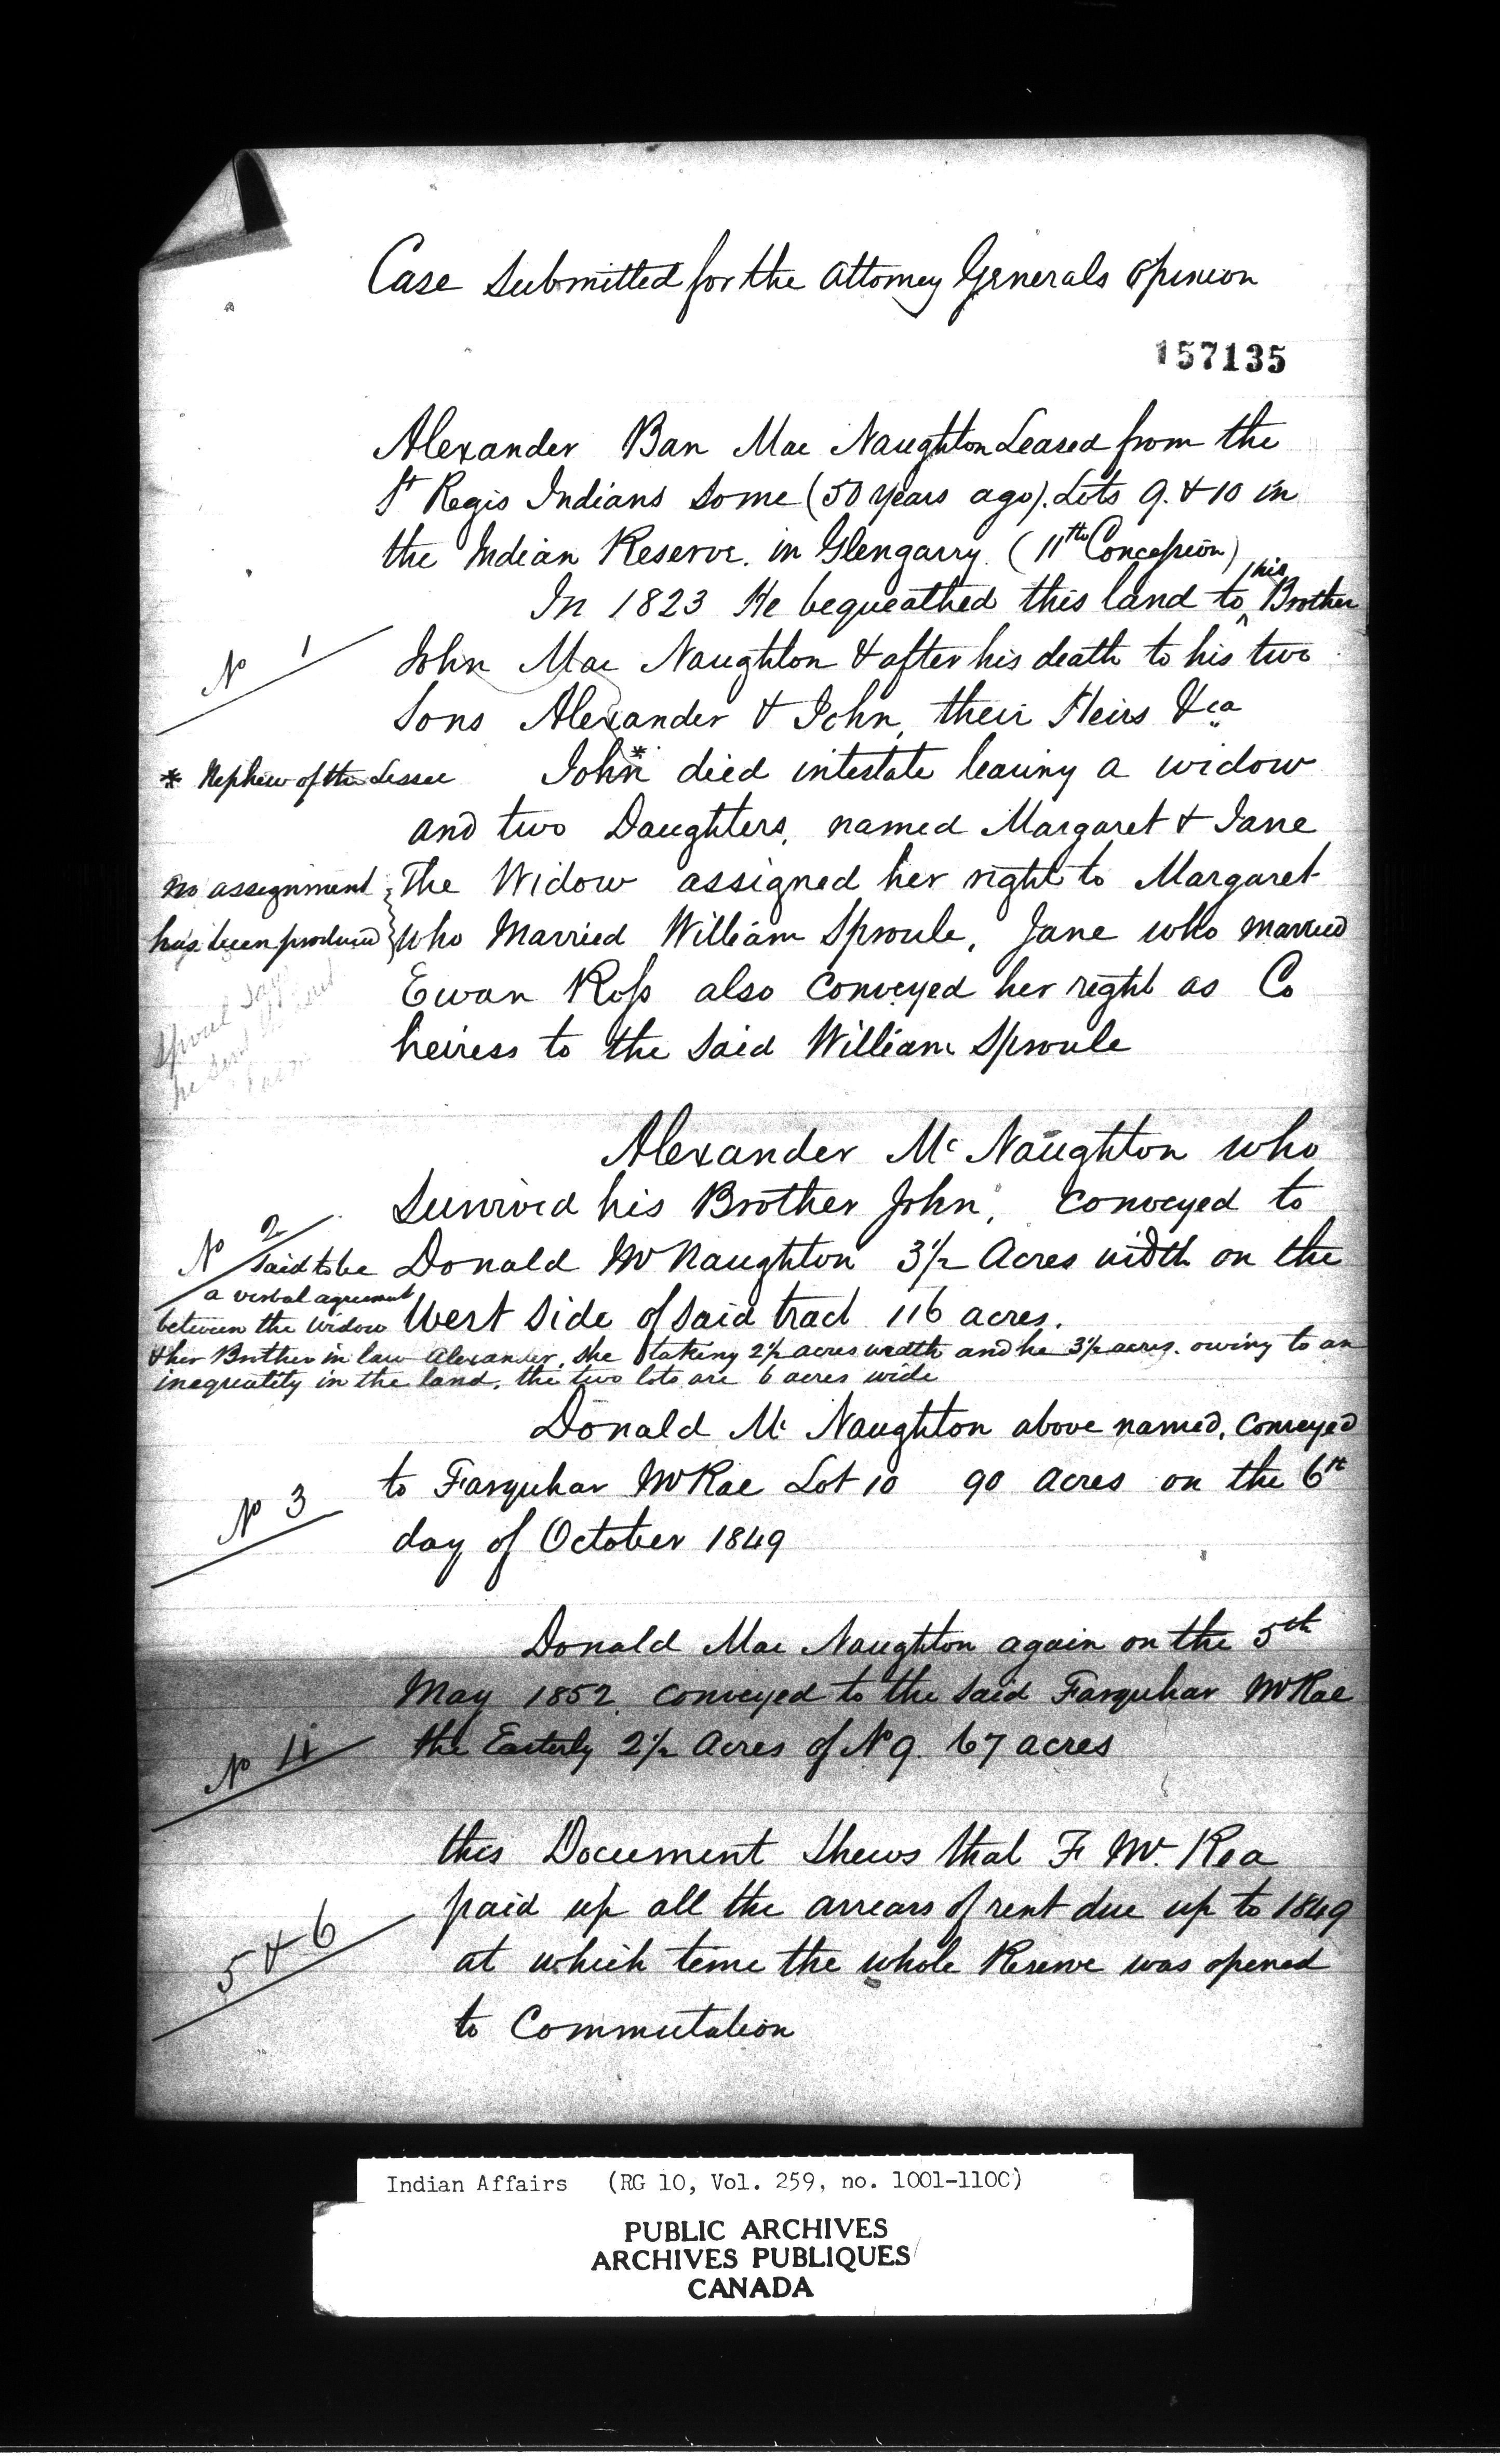 Case Submitted for the Attorney Generals Opinion
157135
Alexander Ban Mac Naughton Leased from the
St Regis Indians Some (50 years ago). Lots 9. & 10 in
the Indian Reserve. in Glengarry. (11th Concession)
In 1823 He bequeathed this land to his Brother
N 1
John Mac Naughton & after his death to his two
Sons Alexander & John, their Heirs &ca
* Nephew of the Lessee
John* died intestate leaving a widow
and two Daughters, named Margaret & Jane
no assignment
has been produced
The Widow assigned her right to Margaret
who Married William Sproule, Jane who married
Ewan Ross also conveyed her right as Co
heiress to the said William Sproule
Sproul says
he
Alexander Mc Naughton who
Survived his Brother John, conveyed to
No 2
Donald McNaughton 3½ Acres width on the
West Side of said tract 116 acres.
Said to be
a verbal agreement
between the Widow
& her Brother in law Alexander, she taking 2½ acres width and he 3½ acres. owing to an
inequality in the land, the two lots are 6 acres wide
Donald Mc Naughton above named, conveyed
to Farquhar McRae Lot 10 90 acres on the 6th
No 3
day of October 1849
Donald Mac Naughton again on the 5th
May 1852 conveyed to the said Farquhar McRae
No 4
the Easterly 2½ Acres of No 9. 67 acres
this Document Shews that F Mc. Rea
paid up all the arrears of rent due up to 1849
5 & 6
at which time the whole Reserve was opened
to Commutation
Indian Affairs (RG 10, Vol. 259, no. 1001-1100)
PUBLIC ARCHIVES
ARCHIVES PUBLIQUES
CANADA